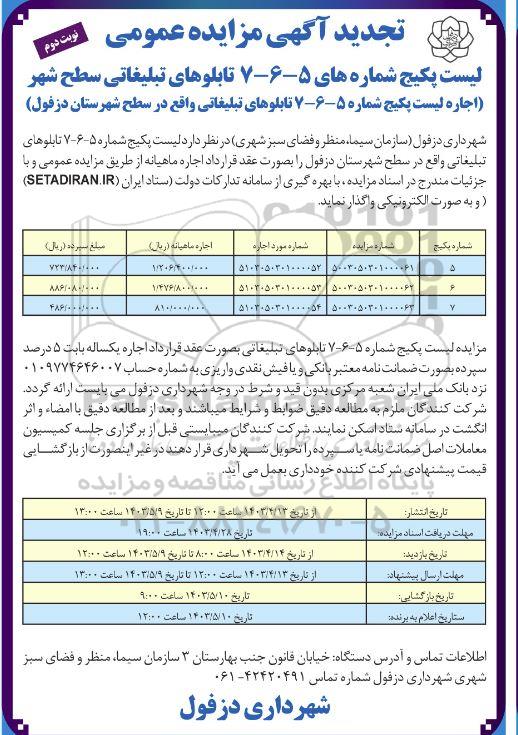 تجدید آگهی مزایده عمومی
نوبت دوم
لیست پکیج شماره های ۵-۶-۷ تابلوهای تبلیغاتی سطح شهر
(اجاره لیست پکیج شماره ۵-۶-۷ تابلوهای تبلیغاتی واقع در سطح شهرستان دزفول)
شهرداری دزفول (سازمان سیما، منظر و فضای سبز شهری) در نظر دارد لیست پکیج شماره ۵-۶-۷ تابلوهای
تبلیغاتی واقع در سطح شهرستان دزفول را بصورت عقد قرارداد اجاره ماهیانه از طریق مزایده عمومی و با
جزئیات مندرج در اسناد مزایده، با بهره گیری از سامانه تدارکات دولت (ستاد ایران (SETADIRAN.IR)
( و به صورت الکترونیکی واگذار نماید.
شماره پکیج شماره مزایده شماره مورد اجاره اجاره ماهیانه (ریال) مبلغ سپرده (ریال)
۵ ۵۰۰۳۰۵۰۳۰۱۰۰۰۰۶۱ ۵۱۰۳۰۵۰۳۰۱۰۰۰۰۵۲ ۱/۲۰۶/۴۰۰/۰۰۰ ۷۲۳/۸۴۰/۰۰۰
۶ ۵۰۰۳۰۵۰۳۰۱۰۰۰۰۶۲ ۵۱۰۳۰۵۰۳۰۱۰۰۰۰۵۳ ۱/۴۷۶/۸۰۰/۰۰۰ ۸۸۶/۰۸۰/۰۰۰
۷ ۵۰۰۳۰۵۰۳۰۱۰۰۰۰۶۳ ۵۱۰۳۰۵۰۳۰۱۰۰۰۰۵۴ ۸۱۰/۰۰۰/۰۰۰ ۴۸۶/۰۰۰/۰۰۰
مزایده لیست پکیج شماره ۵-۶-۷ تابلوهای تبلیغاتی بصورت عقد قرارداد اجاره یکساله بابت ۵ درصد
سپرده بصورت ضمانت نامه معتبر بانکی و یا فیش نقدی واریزی به شماره حساب ۰۱۰۹۷۷۴۶۴۶۰۰۷
نزد بانک ملی ایران شعبه مرکزی بدون قید و شرط در وجه شهرداری دزفول می بایست ارائه گردد.
شرکت کنندگان ملزم به مطالعه دقیق ضوابط و شرایط میباشند و بعد از مطالعه دقیق با امضاء و اثر
انگشت در سامانه ستاد اسکن نمایند. شرکت کنندگان میبایستی قبل از برگزاری جلسه کمیسیون
معاملات اصل ضمانت نامه یا سپرده را تحویل شهرداری قرار دهند در غیر اینصورت از بازگشایی
قیمت پیشنهادی شرکت کننده خودداری بعمل می آید.
پایگاه اطلاع رسانی مناقصه و مزایده
۰۲۱-۸۸۳۴۹۶۷۰-۵
تاریخ انتشار: از تاریخ ۱۴۰۳/۴/۱۳ ساعت ۱۲:۰۰ تا تاریخ ۱۴۰۳/۵/۹ ساعت ۱۳:۰۰
مهلت دریافت اسناد مزایده: تاریخ ۱۴۰۳/۴/۲۸ ساعت ۱۹:۰۰
تاریخ بازدید: از تاریخ ۱۴۰۳/۴/۱۴ ساعت ۸:۰۰ تا تاریخ ۱۴۰۳/۵/۹ ساعت ۱۲:۰۰
مهلت ارسال پیشنهاد: از تاریخ ۱۴۰۳/۴/۱۳ ساعت ۱۲:۰۰ تا تاریخ ۱۴۰۳/۵/۹ ساعت ۱۳:۰۰
تاریخ بازگشایی: تاریخ ۱۴۰۳/۵/۱۰ ساعت ۹:۰۰
ستاریخ اعلام به برنده: تاریخ ۱۴۰۳/۵/۱۰ ساعت ۱۲:۰۰
اطلاعات تماس و آدرس دستگاه: خیابان قانون جنب بهارستان ۳ سازمان سیما، منظر و فضای سبز
شهری شهرداری دزفول شماره تماس ۴۲۴۲۰۴۹۱-۰۶۱
شهرداری دزفول